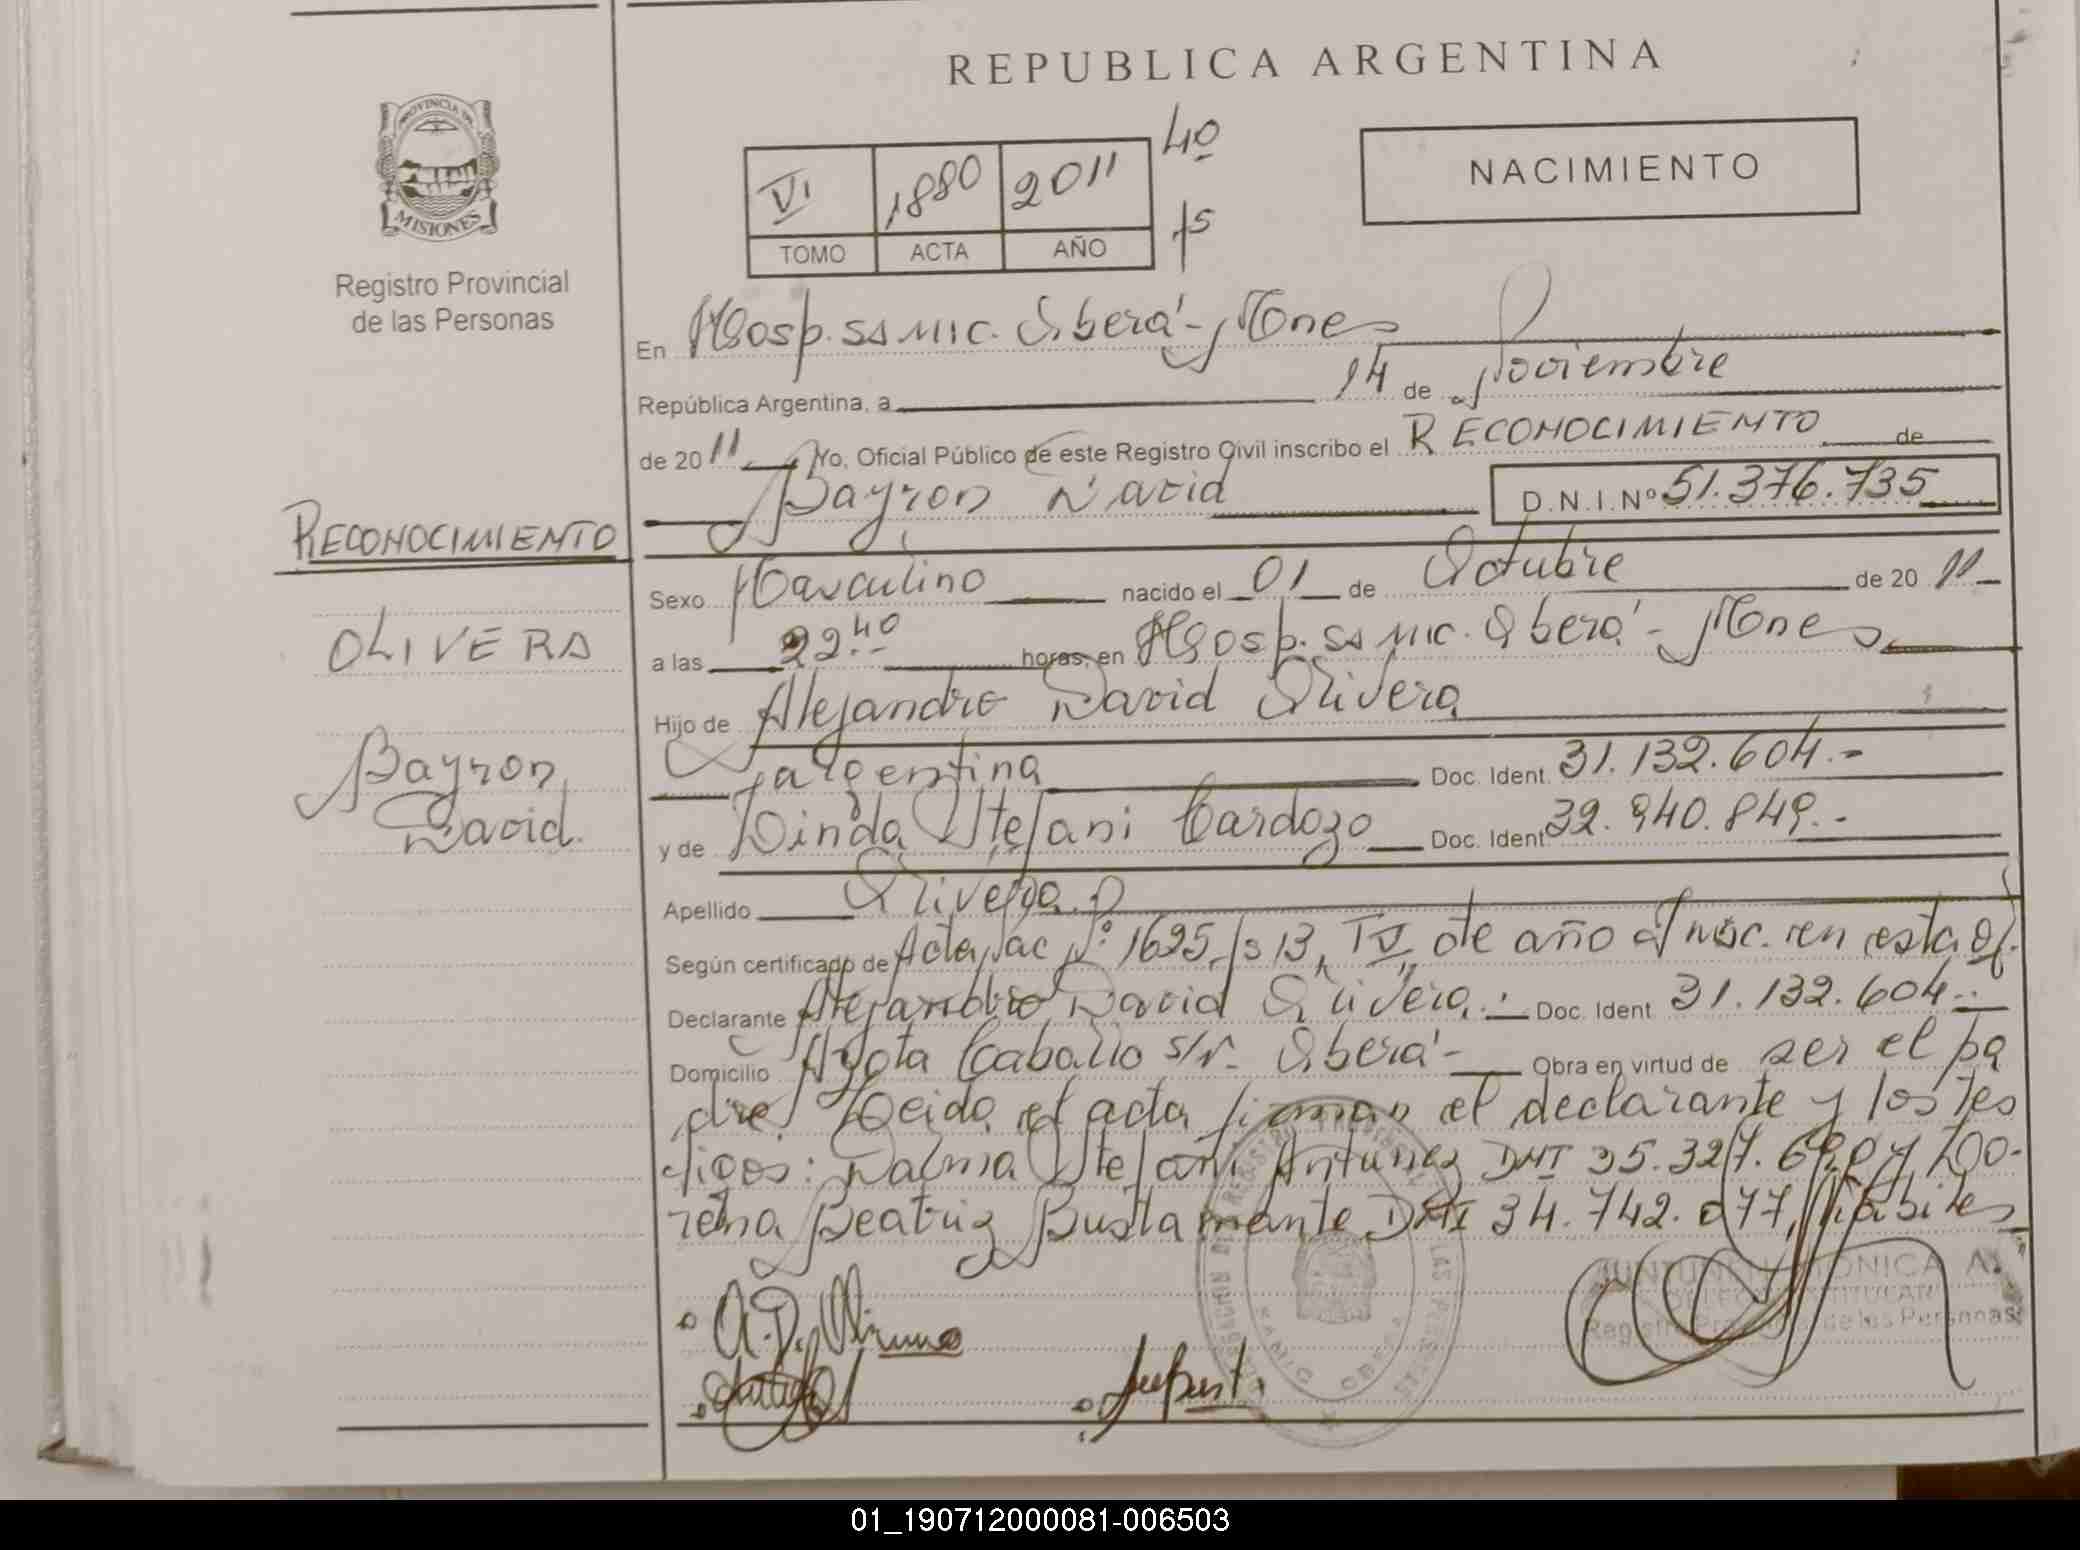 REPUBLICA ARGENTINA
PROVINCIA DE
MISIONES
Registro Provincial
de las Personas
VI 1880 2011 40
TOMO ACTA AÑO 15
NACIMIENTO
En Hosp. SAMIC. Oberá - Mones
República Argentina, a 14 de Noviembre
de 2011 Yo, Oficial Público de este Registro Civil inscribo el RECONOCIMIENTO de
Bayron David D.N.I.Nº 51.376.735
RECONOCIMIENTO
Sexo Masculino nacido el 01 de Octubre de 2011
OLIVERA
a las 22.40 horas, en Hosp. SAMIC. Oberá - Mones
Hijo de Alejandro David Olivera
Bayron
David
argentina Doc. Ident. 31.132.604.-
y de Linda Stefani Cardozo Doc. Ident 32.940.849.-
Apellido Olivera
Según certificado de Acta, Nac Nº 1695, fs 13, TV, de año y nac. en esta Of.
Declarante Alejandro David Olivera.- Doc. Ident 31.132.604.-
Domicilio Picada Caballo s/n. Oberá - Obra en virtud de ser el pa
dre. Leida el acta firman el declarante y los tes
tigos: Dalma Stefani Antunez DNI 35.327. y Lo-
rena Beatriz Bustamante DNI 34.742.077, hábiles
A.D.
REGISTRO PROVINCIAL DE LAS PERSONAS
SAMIC OBERA
MONICA A.
TITULAR
Registro Provincial de las Personas
01_190712000081-006503